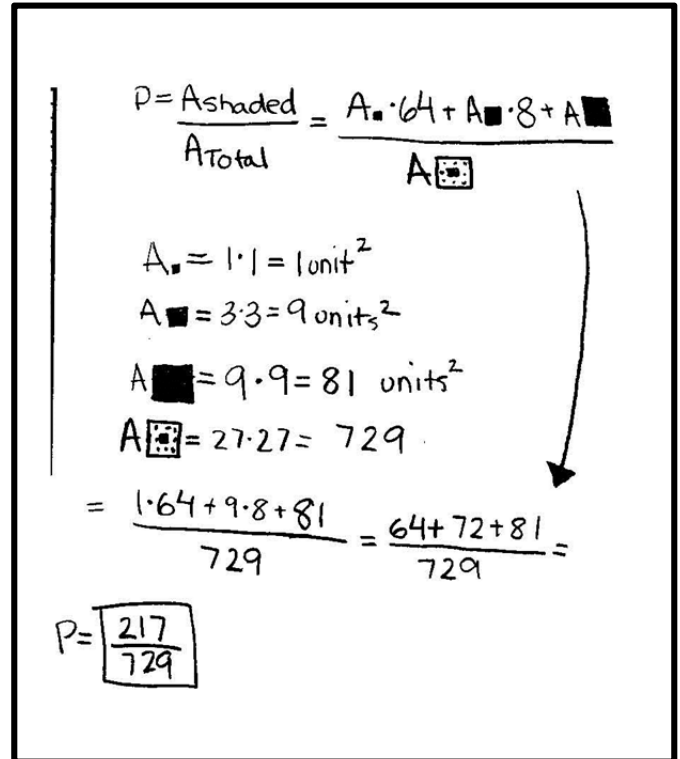 P = Ashaded / ATotal = A▪·64 + A■·8 + A■ / A▣
A▪ = 1·1 = 1 unit²
A■ = 3·3 = 9 units²
A■ = 9·9 = 81 units²
A▣ = 27·27 = 729
= 1·64 + 9·8 + 81 / 729 = 64 + 72 + 81 / 729 =
P = 217 / 729